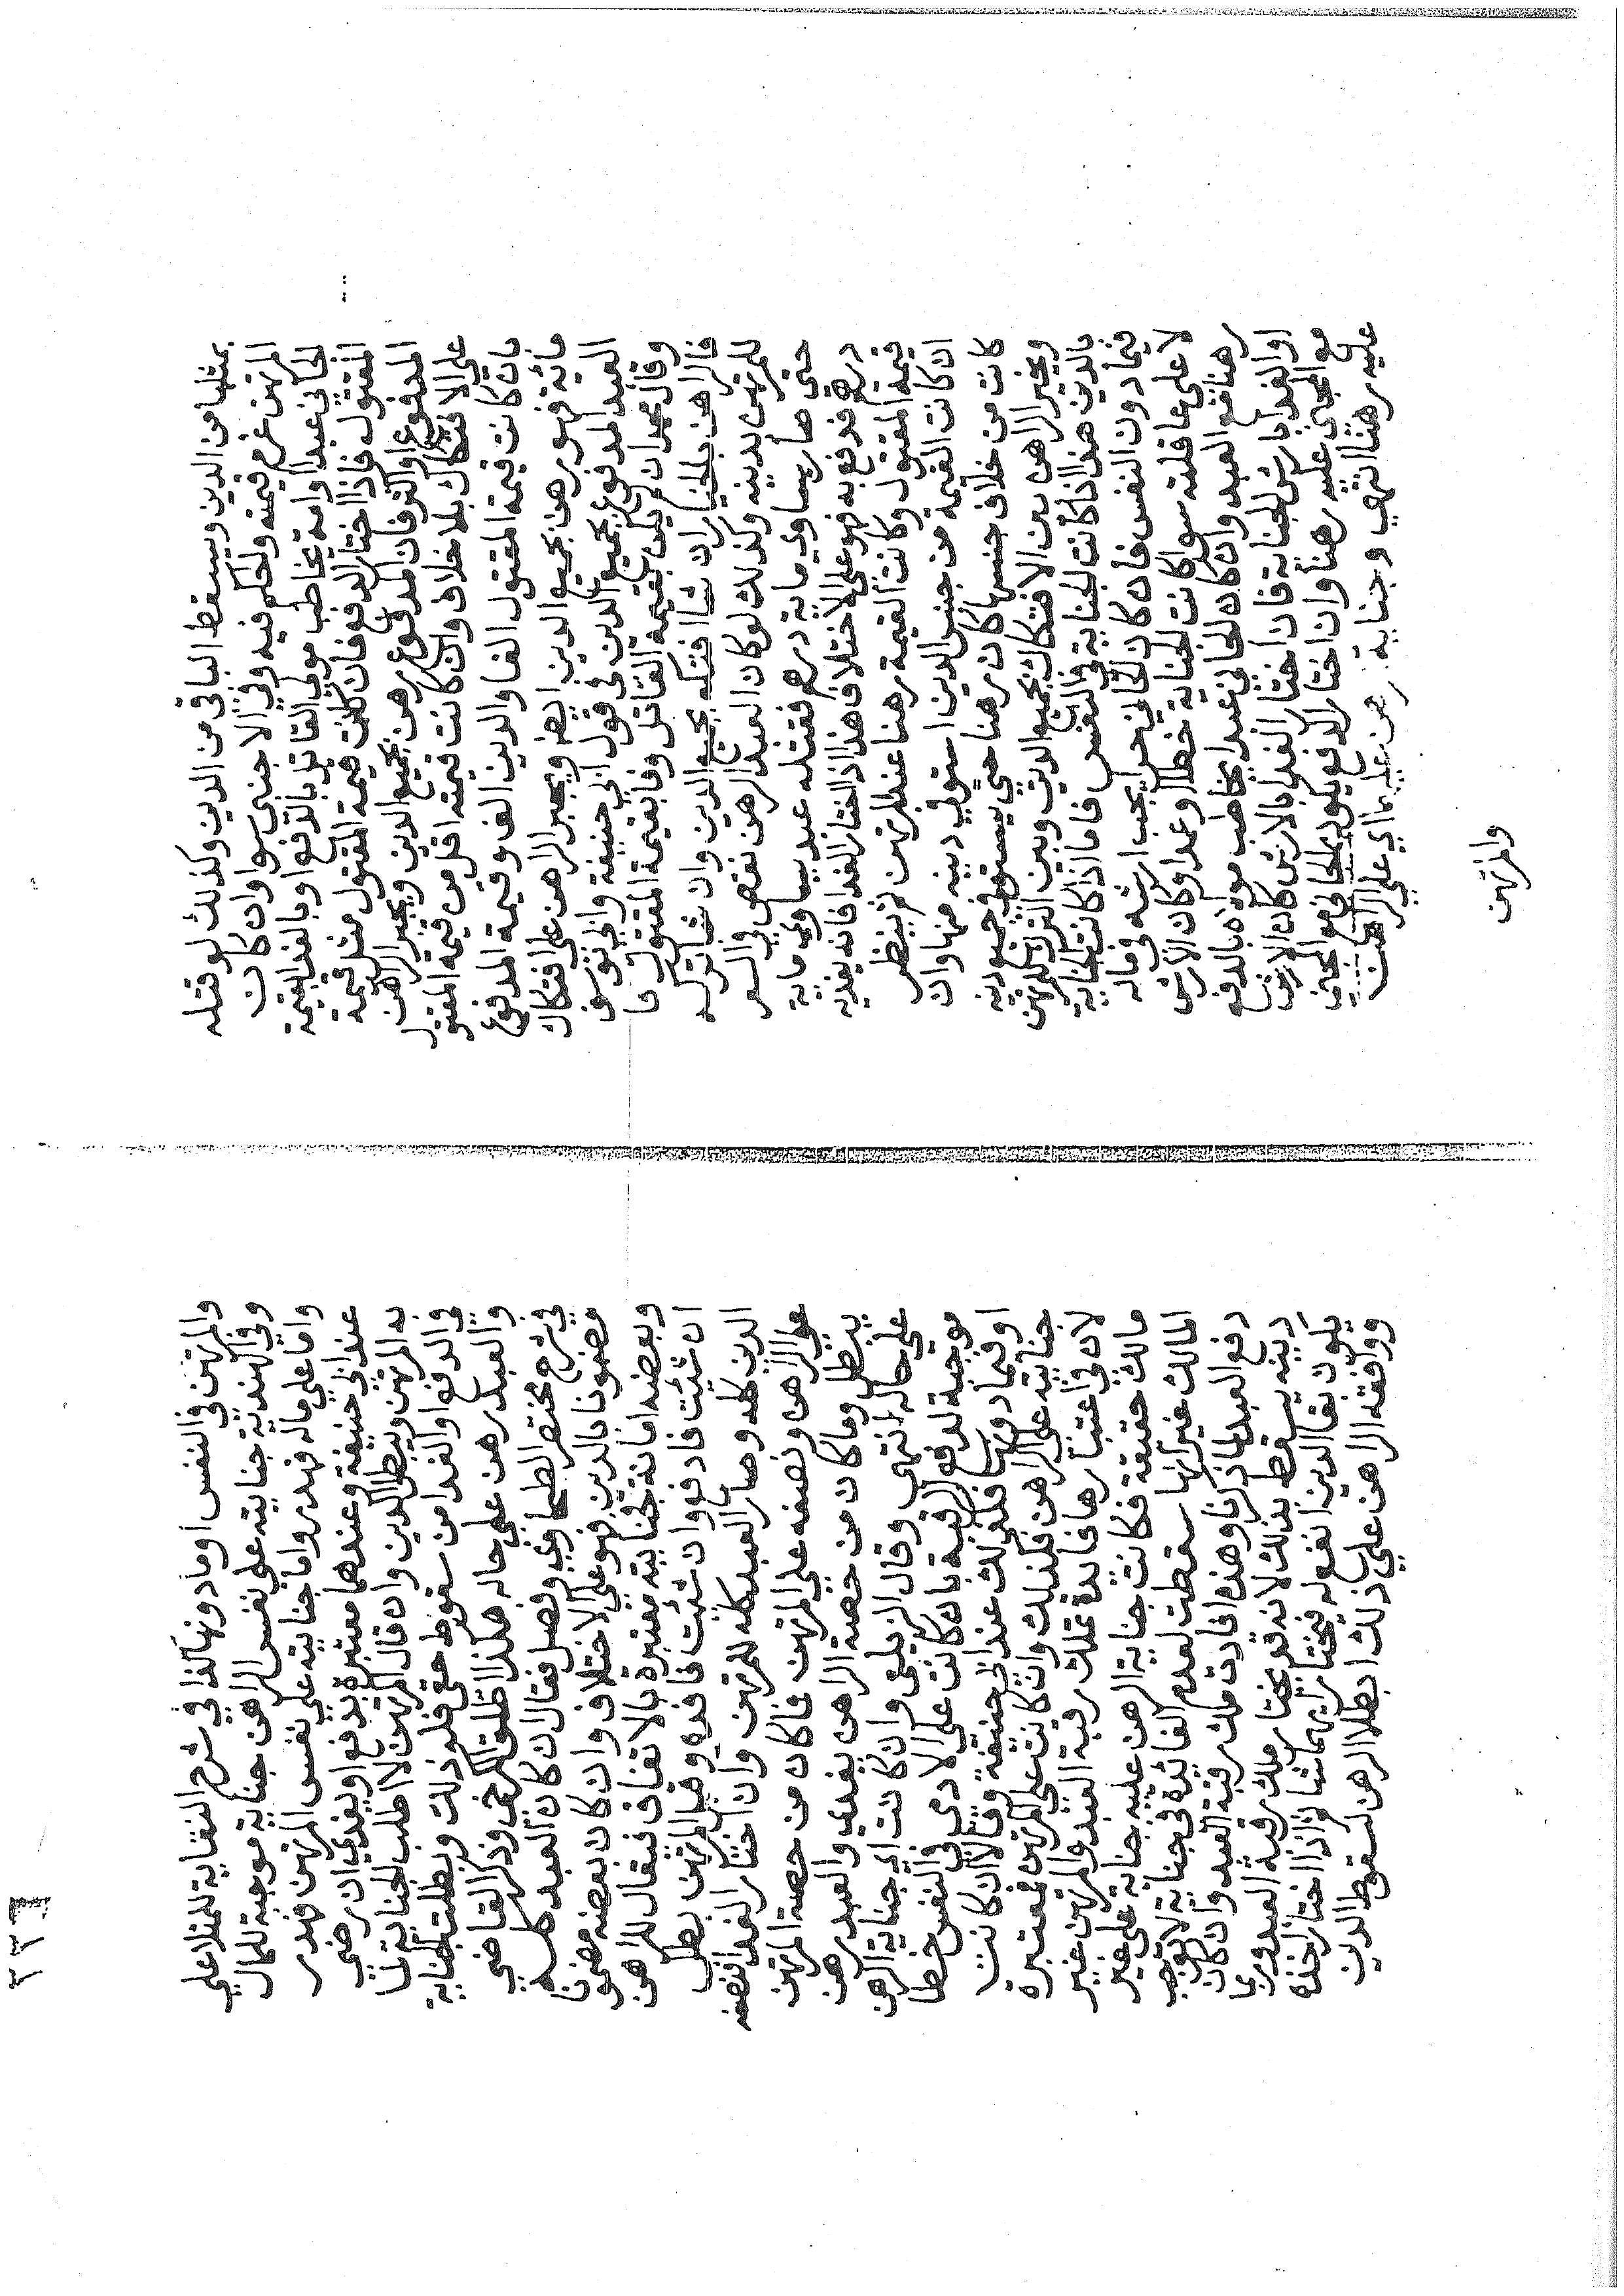 بمثلها من الدين ويسقط الباقي من الدين وكذلك لو قتله
المرتهن غرم قيمته والحكم فيه وفي الاجنبي سوا وان كان
الجاني عبدا او امة يخاطب مولي القاتل بالدفع او بالفدا بقيمة
المقتول فاذا اختار الدفع فان كانت قيمة المقتول مثل قيمة
المدفوع او اكثر فان المدفوع رهن بجميع الدين ويجبر الراهن
علي الافتكاك بلا خلاف وان كانت قيمته اقل من قيمة المقتول
بان كانت قيمة المقتول الفا والدين الف وقيمة المدفوع
مائة فهو رهن بجميع الدين ايضا ويجبر الراهن علي افتكاك
العبد المدفوع بجميع الدين في قول ابي حنيفة وابي يوسف
وقال محمد ان لم يكن بقيمة القاتل وفا بقيمة المقتول
فالراهن بالخيار ان شا افتكه بجميع الدين وان شا تركه
للمرتهن بدينه وكذلك لو كان العبد الرهن نقص في السعر
حتي صار يساوي ماية درهم فقتله عبد يساوي ماية
درهم فدفع به فهو علي الاختلاف هذا اذا اختار الفدا فانه يفديه
قيمة المقتول وكانت القيمة رهنا عند المرتهن ثم ينظر
ان كانت القيمة من جنس الدين استوفي دينه منها وان
كانت من خلاف جنسها كان رهنا حتي يستوفي جميع دينه
ويجبر الراهن بين الافتكاك بجميع الدين وبين الترك للمرتهن
بالدين هذا اذا كانت الجناية في النفس فاما اذا كانت الجناية
فيما دون النفس فان كان الجاني حرا يجب ارشه في ماله
لا علي عاقلته سوا كانت الجناية خطا او عمدا وكان الارش
رهنا مع العبد وان كان الجاني عبدا يخاطب مولاه بالدفع
او الفدا بارش الجناية فان اختار الفدا بالارش كان الارش
مع المجني عليه رهنا وان اختار الدفع يكون الجاني مع المجني
عليه رهنا انتهي وجناية رهن عليهما اي علي الراهن
والمرتهن
والمرتهن في النفس او ما دونها كذا في شرح النقاية للمنلا علي
وفي الهندية جنايته علي نفس الراهن جناية موجبة للمال
واما علي ماله فهدر واما جنايته علي نفس المرتهن فهدر
عند ابي حنيفة وعندهما معتبرة يدفع او يفدي ان رضي
به المرتهن ويبطل الدين وان قال المرتهن لا اطلب الجناية لما
في الدفع او الفدا من سقوط حقي فله ذلك وبطلت الجناية
والعبد رهن علي حاله هكذا اطلق الكرخي وذكر القاضي
في شرح مختصر الطحاوي وفصل فقال ان كان العبد كله
مضمونا بالدين فهو علي الاختلاف وان كان بعضه مضمونا
وبعضه امانة فجنايته معتبرة بالاتفاق فيقال للراهن
ان شئت فادفع وان شئت فافده وقبل المرتهن بطل
الدين كله وصار العبد كله للمرتهن وان اختار الفدا فنصفه
علي الراهن ونصفه علي المرتهن فما كان من حصة المرتهن
يبطل وما كان من حصة الراهن يفدي والعبد رهن
علي حاله انتهي وقال الزيلعي وان كانت اي جناية الرهن
موجبة لدفع الرقبة بان كانت علي الادمي في النفس خطا
او فيما دونها فكذلك عند ابي حنيفة وقالا ان كانت
جنايته علي الراهن فكذلك وان كانت علي المرتهن فمعتبرة
لان في اعتبارها فايدة تملك رقبة العبد والمرتهن غير
مالك حقيقة فكانت جناية الرهن عليه جناية علي غير
المالك غير انها سقطت لعدم الفائدة في جناية لا توجب
دفع العبد لما ذكرنا وهذه افادت ملك رقبة العبد وان كان
دينه يسقط بذلك لانه قد يختار ملك رقبة العبد وربما
يكون بقا الدين انفع له فيختار ايهما شا واذا اختار اخذه
ووافقه الراهن علي ذلك ابطلا الرهن لسقوط الدين